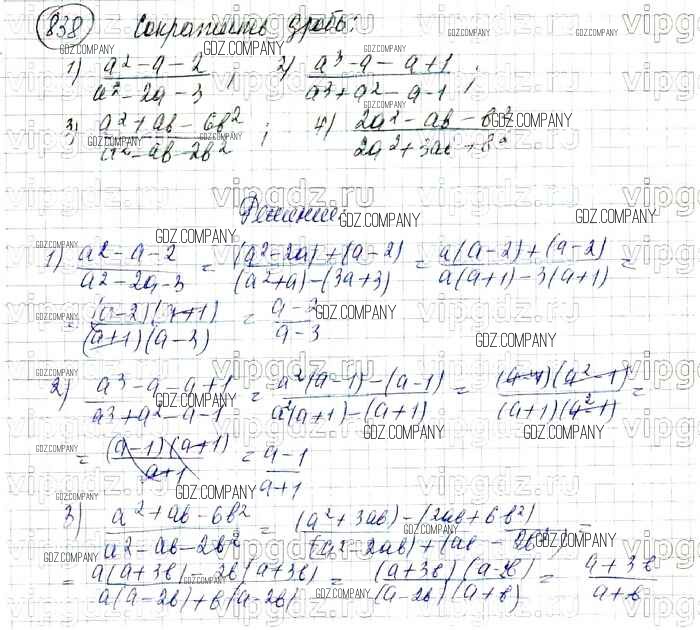 838 Сократить дробь:
1) (a² - a - 2)/(a² - 2a - 3); 2) (a³ - a - a + 1)/(a³ + a² - a - 1);
3) (a² + ab - 6b²)/(a² - ab - 2b²); 4) (2a² - ab - b²)/(2a² + 3ab + b²)
Решение:
1) (a² - a - 2)/(a² - 2a - 3) = ((a² - 2a) + (a - 2))/((a² + a) - (3a + 3)) = (a(a - 2) + (a - 2))/(a(a + 1) - 3(a + 1)) =
= ((a - 2)(a + 1))/((a + 1)(a - 3)) = (a - 2)/(a - 3)
2) (a³ - a - a + 1)/(a³ + a² - a - 1) = (a²(a - 1) - (a - 1))/(a²(a + 1) - (a + 1)) = ((a - 1)(a² - 1))/((a + 1)(a² - 1)) =
= ((a - 1)(a + 1))/(a + 1) = (a - 1)/(a + 1)
3) (a² + ab - 6b²)/(a² - ab - 2b²) = ((a² + 3ab) - (2ab + 6b²))/((a² - 2ab) + (ab - 2b²)) =
= (a(a + 3b) - 2b(a + 3b))/(a(a - 2b) + b(a - 2b)) = ((a + 3b)(a - 2b))/((a - 2b)(a + b)) = (a + 3b)/(a + b)
GDZ.COMPANY
vipgdz.ru